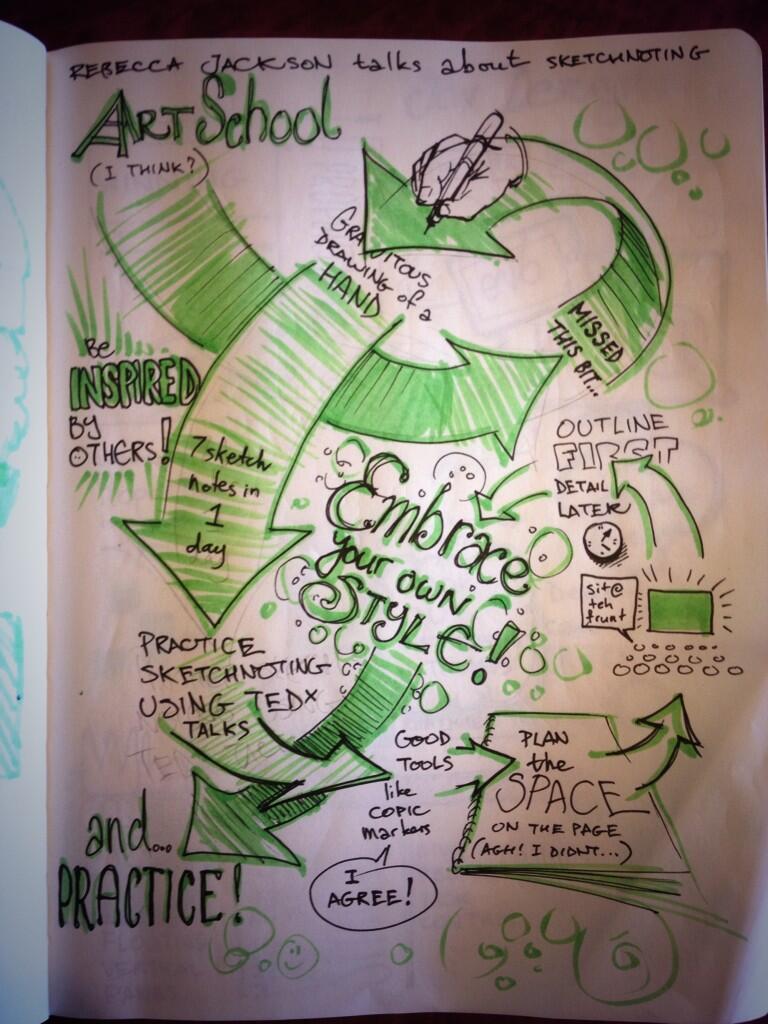 REBECCA JACKSON talks about SKETCHNOTING
ART School
(I THINK?)
GRATUITOUS
DRAWING of a
HAND
MISSED
THIS BIT...
Be
INSPIRED
BY
OTHERS!
7 sketch
notes in
1
day
OUTLINE
FIRST
DETAIL
LATER
Embrace
your own
STYLE!
sit@
teh
frunt
PRACTICE
SKETCHNOTING
USING TEDx
TALKS
GOOD
TOOLS
like
COPIC
markers
I
AGREE!
PLAN
the
SPACE
ON THE PAGE
(AGH! I DIDNT...)
and...
PRACTICE!